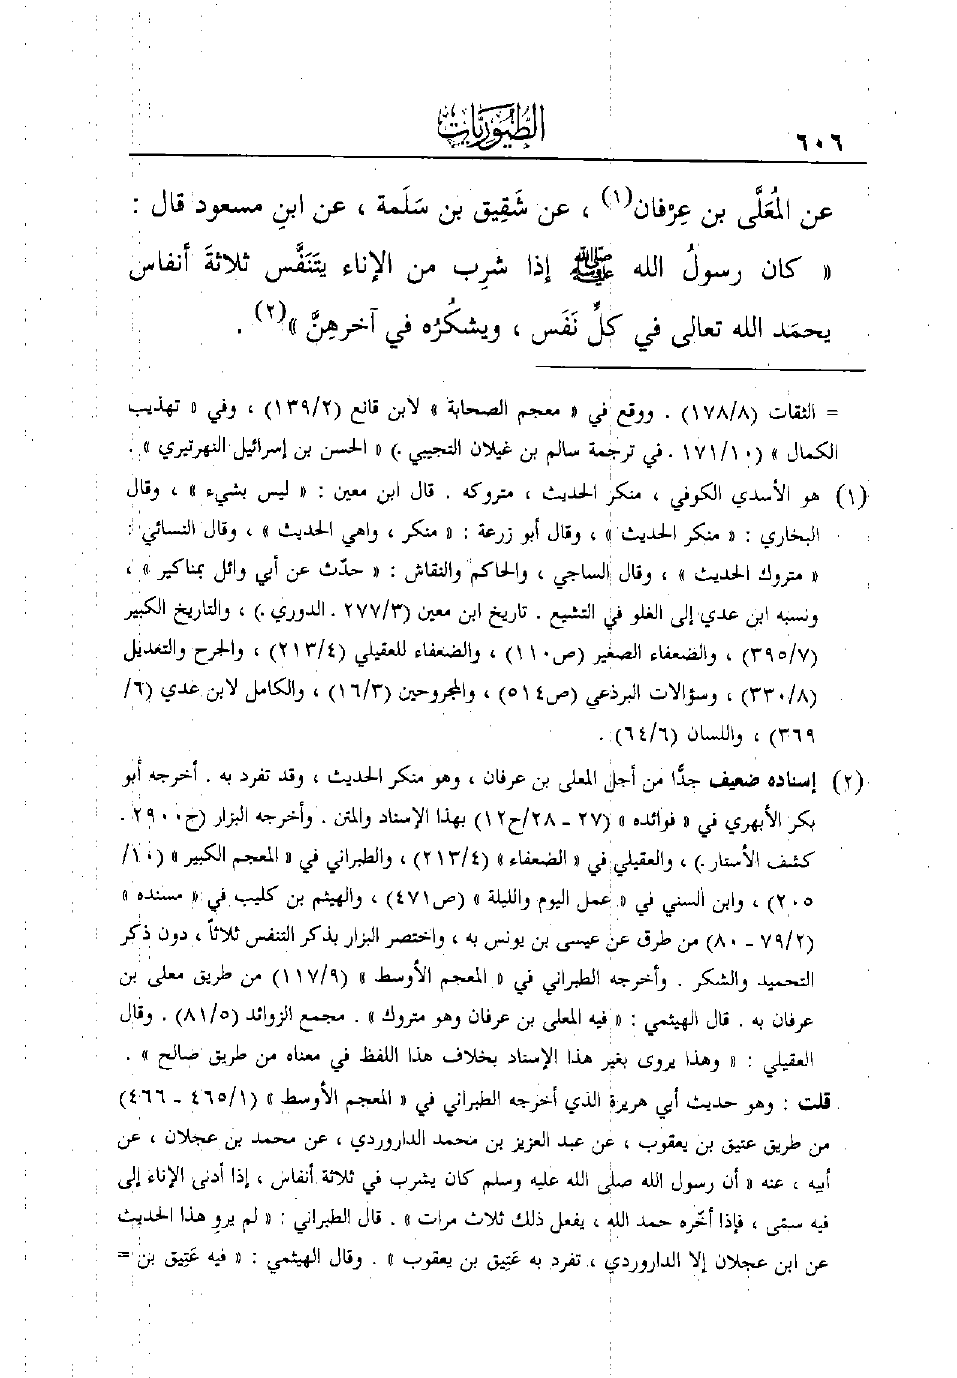 ٦٠٦
الطيوريات
عن المُعَلَّى بن عِرْفان(١) ، عن شَقِيق بن سَلَمة ، عن ابنِ مسعود قال :
« كان رسولُ الله ﷺ إذا شرِب من الإناء يتَنَفَّس ثلاثةَ أنفاس
يحمَد الله تعالى في كلِّ نَفَس ، ويشكُرُه في آخرهِنَّ »(٢) .
= الثقات (١٧٨/٨) . ووقع في « معجم الصحابة » لابن قانع (١٣٩/٢) ، وفي « تهذيب
الكمال » (١٧١/١٠ . في ترجمة سالم بن غيلان التجيبي .) « الحسن بن إسرائيل النهرتيري » .
(١) هو الأسدي الكوفي ، منكر الحديث ، متروكه . قال ابن معين : « ليس بشيء » ، وقال
البخاري : « منكر الحديث » ، وقال أبو زرعة : « منكر ، واهي الحديث » ، وقال النسائي :
« متروك الحديث » ، وقال الساجي ، والحاكم والنقاش : « حدّث عن أبي وائل بمناكير » ،
ونسبه ابن عدي إلى الغلو في التشيع . تاريخ ابن معين (٢٧٧/٣ . الدوري .) ، والتاريخ الكبير
(٣٩٥/٧) ، والضعفاء الصغير (ص١١٠) ، والضعفاء للعقيلي (٢١٣/٤) ، والجرح والتعديل
(٣٣٠/٨) ، وسؤالات البرذعي (ص٥١٤) ، والمجروحين (١٦/٣) ، والكامل لابن عدي (٦/
٣٦٩) ، واللسان (٦٤/٦) .
(٢) إسناده ضعيف جدًّا من أجل المعلى بن عرفان ، وهو منكر الحديث ، وقد تفرد به . أخرجه أبو
بكر الأبهري في « فوائده » (٢٧ - ٢٨/ح١٢) بهذا الإسناد والمتن . وأخرجه البزار (ح٢٩٠٠ .
كشف الأستار .) ، والعقيلي في « الضعفاء » (٢١٣/٤) ، والطبراني في « المعجم الكبير » (١٠/
٢٠٥) ، وابن السني في « عمل اليوم والليلة » (ص٤٧١) ، والهيثم بن كليب في « مسنده »
(٧٩/٢ - ٨٠) من طرق عن عيسى بن يونس به ، واختصر البزار بذكر التنفس ثلاثاً ، دون ذكر
التحميد والشكر . وأخرجه الطبراني في « المعجم الأوسط » (١١٧/٩) من طريق معلى بن
عرفان به . قال الهيثمي : « فيه المعلى بن عرفان وهو متروك » . مجمع الزوائد (٨١/٥) . وقال
العقيلي : « وهذا يروى بغير هذا الإسناد بخلاف هذا اللفظ في معناه من طريق صالح » .
قلت : وهو حديث أبي هريرة الذي أخرجه الطبراني في « المعجم الأوسط » (٤٦٥/١ - ٤٦٦)
من طريق عتيق بن يعقوب ، عن عبد العزيز بن محمد الداروردي ، عن محمد بن عجلان ، عن
أبيه ، عنه « أن رسول الله صلى الله عليه وسلم كان يشرب في ثلاثة أنفاس ، إذا أدنى الإناء إلى
فيه سمّى ، فإذا أخّره حمد الله ، يفعل ذلك ثلاث مرات » . قال الطبراني : « لم يروِ هذا الحديث
عن ابن عجلان إلا الداروردي ، تفرد به عَتِيق بن يعقوب » . وقال الهيثمي : « فيه عَتِيق بن =